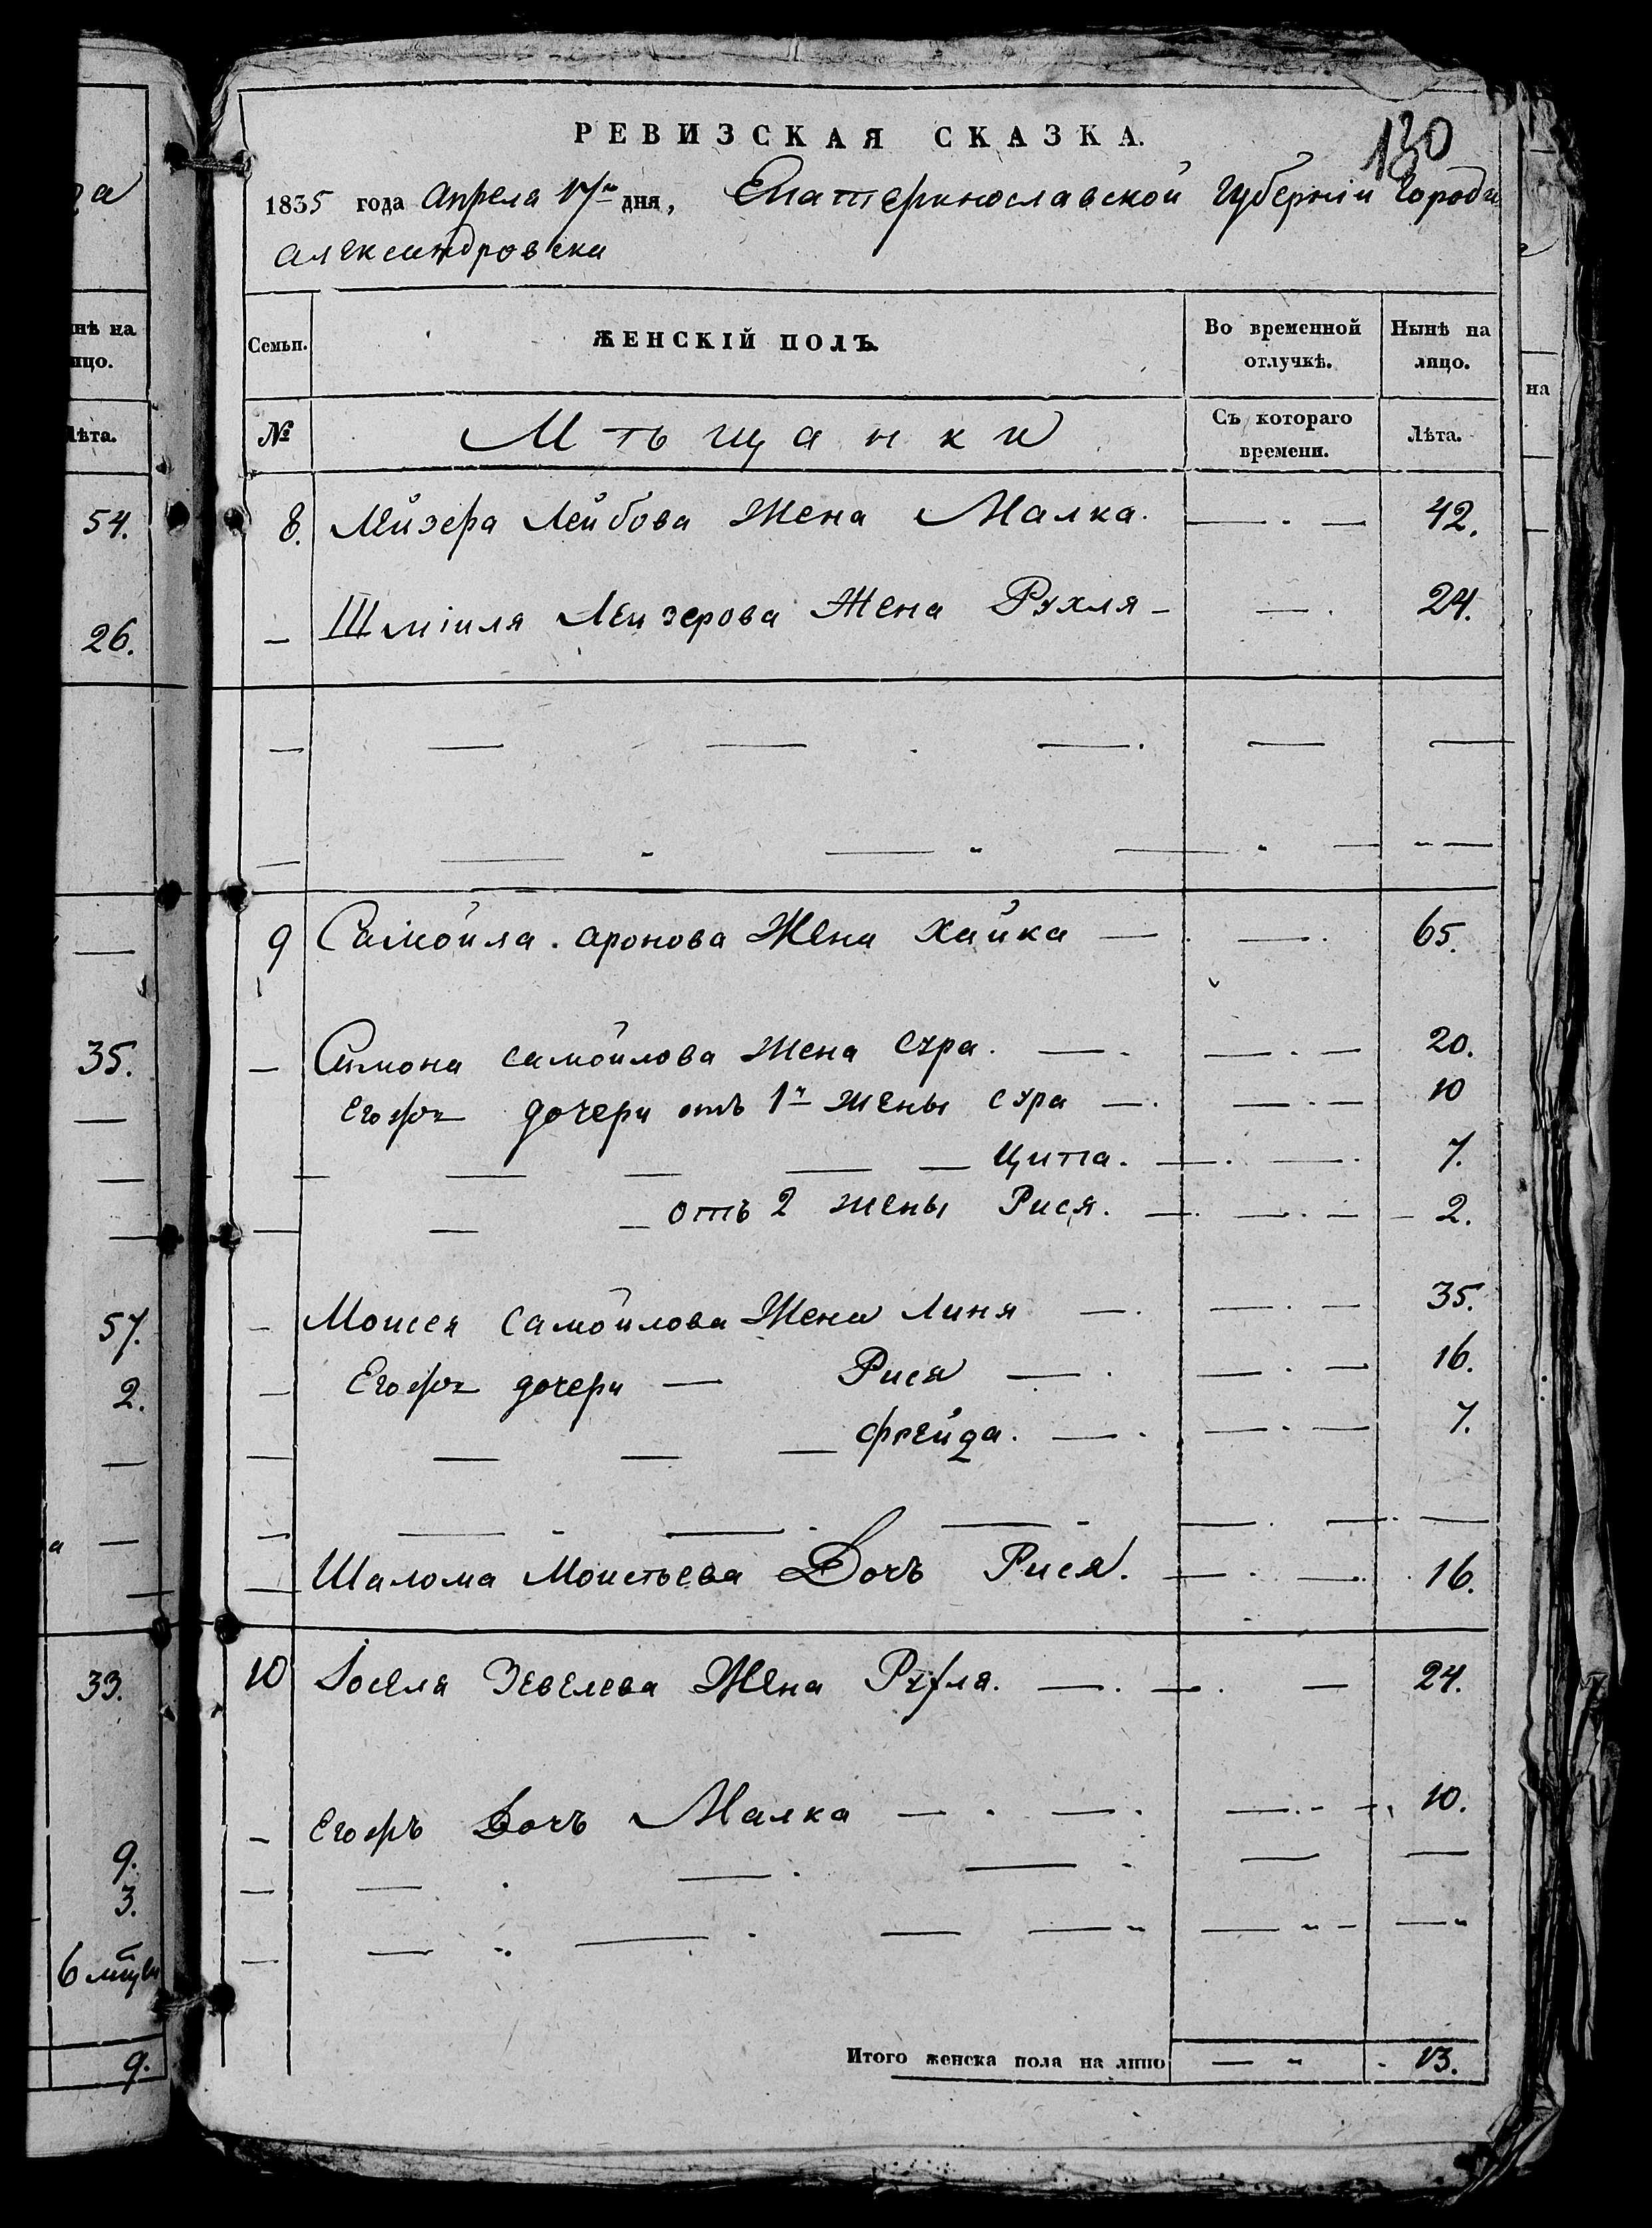 да
130
РЕВИЗСКАЯ СКАЗКА.
1835 года Апреля 17го дня, Екатеринославской Губерніи Города
Александровска
Семьи. ЖЕНСКІЙ ПОЛЪ. Во временной отлучкѣ. Нынѣ на лицо.
№ Мѣщанки Съ котораго времени. Лѣта.
8. Лейзера Лейбова Жена Малка. — . — 42.
— Шміиля Лейзерова Жена Рухля — — . 24.
— — — . — . — —
— — " — " — " — " —
9 Самойла . Аронова Жена Хайка — . — . 65.
— Симона Самойлова Жена Сура . — . — . — 20.
Егожъ дочери отъ 1й жены Сура — . — . — 10
— — — — — Ципа . — . — . 7.
— — — отъ 2 жены Рися . — . — . — 2.
— Моисея Самойлова Жена Линя — . — . — 35.
— Егожъ дочери — Рися — . — . — 16.
— — — — Фрейда . — . — . — 7.
— — — . — — . — . —
— Шалома Моисѣева Дочь Рися . — . — . 16.
10 Іоселя Зевелева Жена Рухля . — . — . — 24.
— Егожъ Дочь Малка — . — . — . — 10.
— — . — . — . — —
— — . — . — — " — " — — "
Итого женска пола на лицо — " 13.
нѣ на
ицо.
Лѣта.
54.
26.
—
35.
—
—
—
57.
2.
—
—
—
33.
9.
3.
9.
на